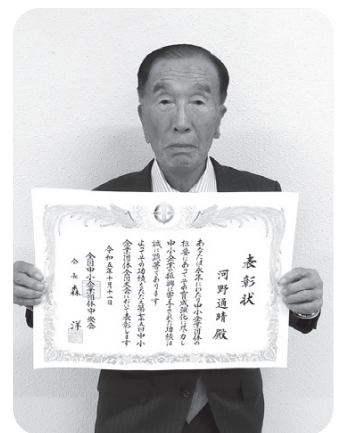 表彰状
河野通晴 殿
あなたは永年にわたり中小企業団体の
枢要にあってその育成強化に尽力し
中小企業の振興に寄与された功績は
誠に顕著であります
よってその功績をたたえ第七十五回中小
企業団体全国大会において表彰します
令和五年十月十一日
全国中小企業団体中央会
会長 森 洋